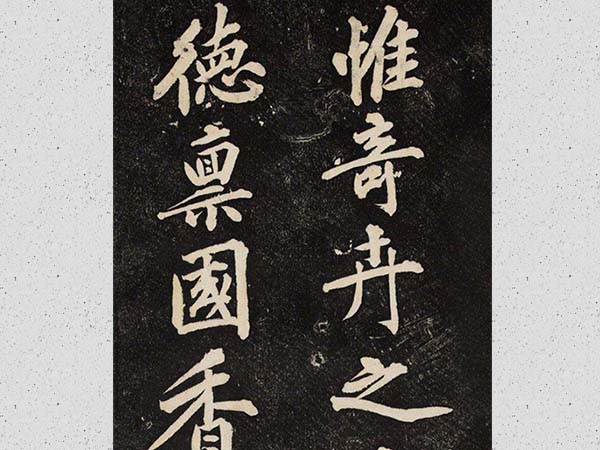 惟奇卉之
德禀國香